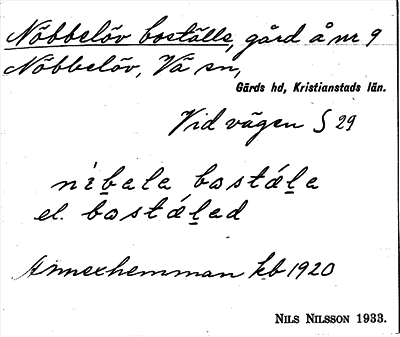 Nöbbelöv boställe, gård å nr 9
Nöbbelöv, Vä sn,
Gärds hd, Kristianstads län.
Vid vägen S 29
nìbala bostǽla
el. bostǽlad
Annexhemman kb 1920
NILS NILSSON 1933.